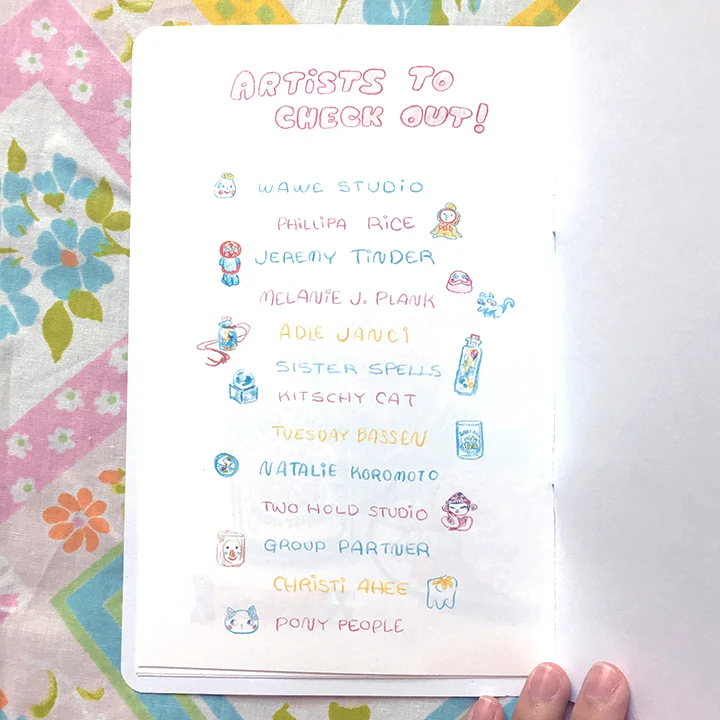 ARTISTS TO
CHECK OUT!
WAWE STUDIO
PHILLIPA RICE
JEREMY TINDER
MELANIE J. PLANK
ADIE JANCI
SISTER SPELLS
KITSCHY CAT
TUESDAY BASSEN
NATALIE KOROMOTO
TWO HOLD STUDIO
GROUP PARTNER
CHRISTI AHEE
PONY PEOPLE